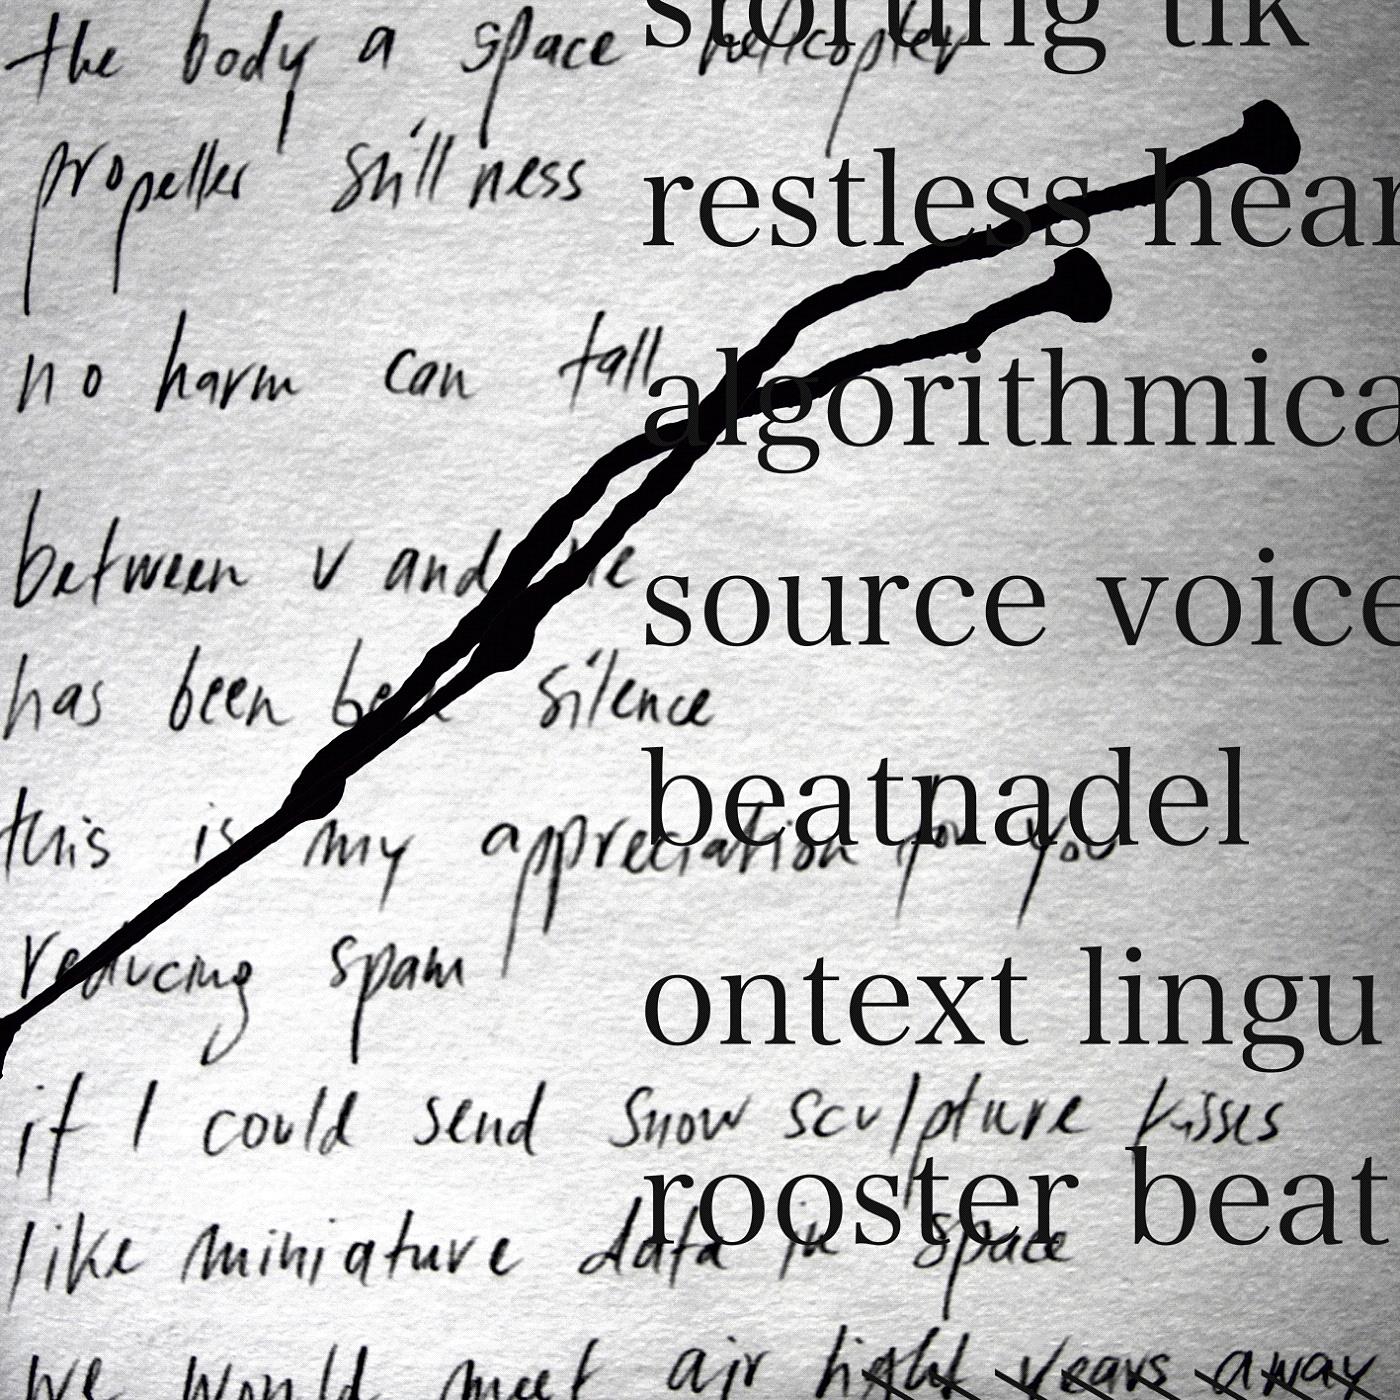 the body a space helicopter
propeller stillness
no harm can fall
between v and
has been silence
this is my appreciation for you
reducing spam
if I could send snow sculpture kisses
like miniature data in space
we would meet air light years away
tik
restless hear
algorithmica
source voice
beatnadel
ontext lingu
rooster beat